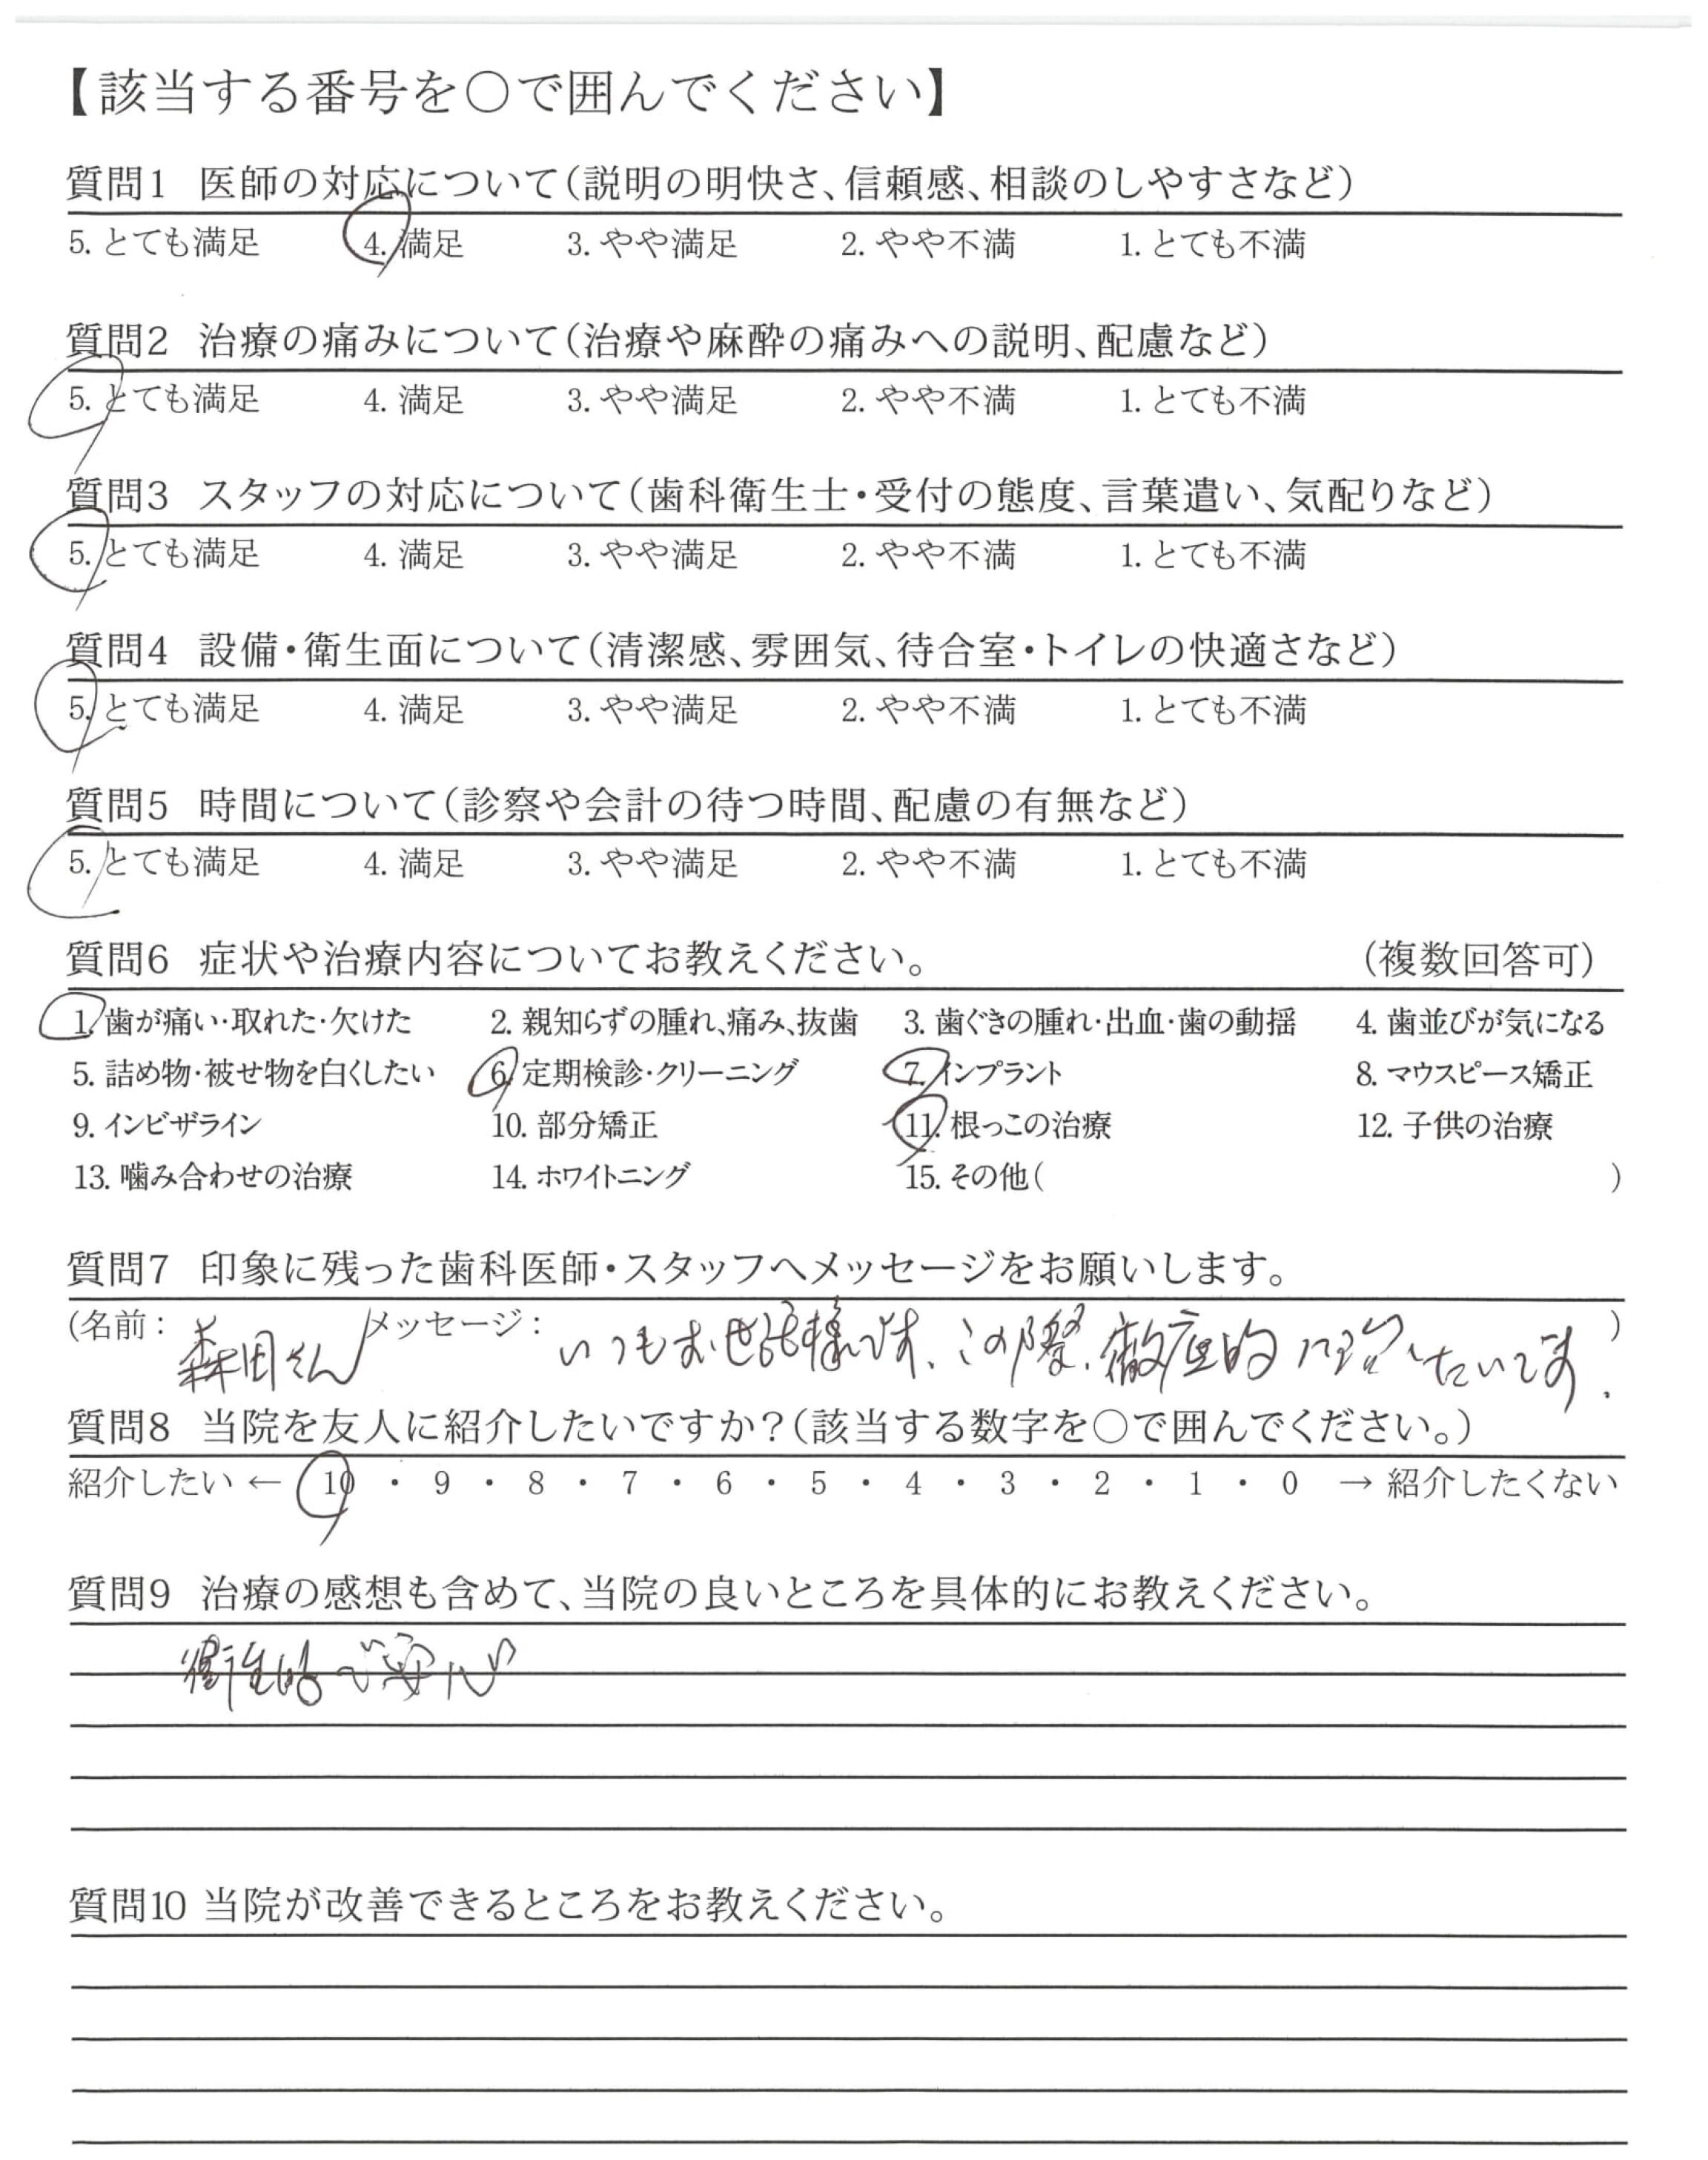 【該当する番号を○で囲んでください】
質問1 医師の対応について(説明の明快さ、信頼感、相談のしやすさなど)
5. とても満足 4. 満足 3. やや満足 2. やや不満 1. とても不満
質問2 治療の痛みについて(治療や麻酔の痛みへの説明、配慮など)
5. とても満足 4. 満足 3. やや満足 2. やや不満 1. とても不満
質問3 スタッフの対応について(歯科衛生士・受付の態度、言葉遣い、気配りなど)
5. とても満足 4. 満足 3. やや満足 2. やや不満 1. とても不満
質問4 設備・衛生面について(清潔感、雰囲気、待合室・トイレの快適さなど)
5. とても満足 4. 満足 3. やや満足 2. やや不満 1. とても不満
質問5 時間について(診察や会計の待つ時間、配慮の有無など)
5. とても満足 4. 満足 3. やや満足 2. やや不満 1. とても不満
質問6 症状や治療内容についてお教えください。 (複数回答可)
1. 歯が痛い・取れた・欠けた 2. 親知らずの腫れ、痛み、抜歯 3. 歯ぐきの腫れ・出血・歯の動揺 4. 歯並びが気になる
5. 詰め物・被せ物を白くしたい 6. 定期検診・クリーニング 7. インプラント 8. マウスピース矯正
9. インビザライン 10. 部分矯正 11. 根っこの治療 12. 子供の治療
13. 噛み合わせの治療 14. ホワイトニング 15. その他( )
質問7 印象に残った歯科医師・スタッフへメッセージをお願いします。
(名前: 森田さん メッセージ: いつもお世話様です、この際、徹底的に治したいです. )
質問8 当院を友人に紹介したいですか?(該当する数字を○で囲んでください。)
紹介したい ← 10 ・ 9 ・ 8 ・ 7 ・ 6 ・ 5 ・ 4 ・ 3 ・ 2 ・ 1 ・ 0 → 紹介したくない
質問9 治療の感想も含めて、当院の良いところを具体的にお教えください。
衛生的で安心
質問10 当院が改善できるところをお教えください。